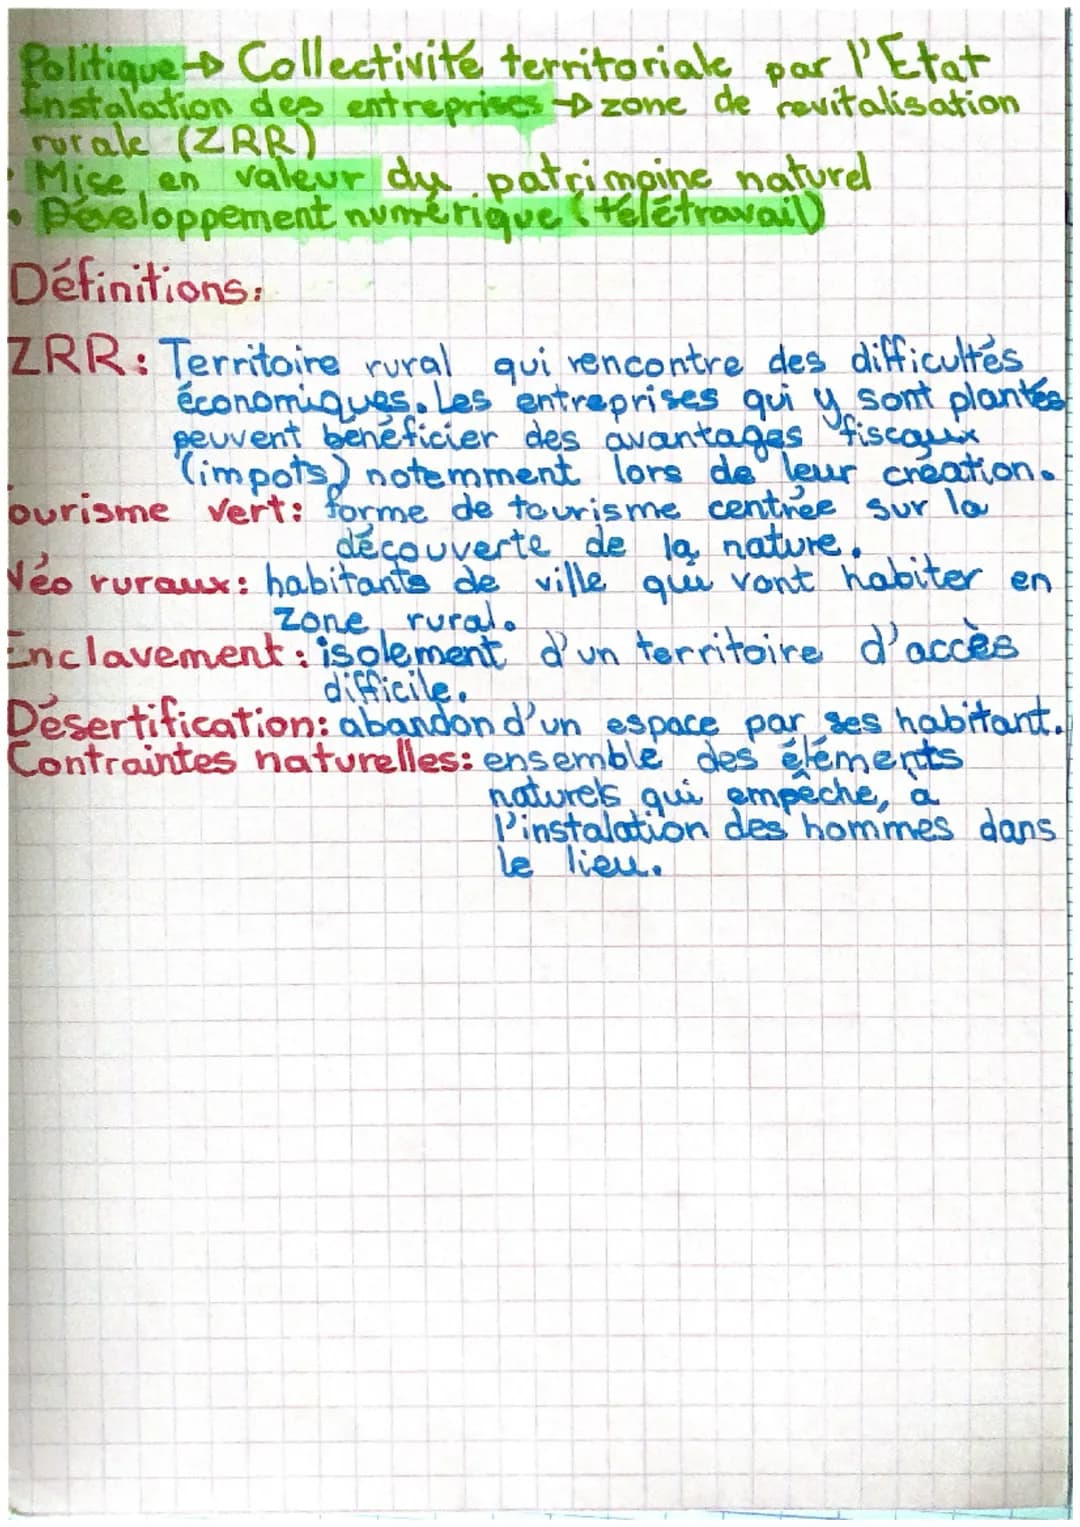 Politique → Collectivité territoriale par l'Etat
Instalation des entreprises → zone de revitalisation
rurale (ZRR)
• Mise en valeur du patrimoine naturel
• Développement numérique (télétravail)
Définitions:
ZRR: Territoire rural qui rencontre des difficultés
économiques. Les entreprises qui y sont plantés
peuvent bénéficier des avantages fiscaux
(impots) notemment lors de leur création.
ourisme vert: forme de tourisme centrée sur la
découverte de la nature.
Néo ruraux: habitants de ville qui vont habiter en
zone rural.
Enclavement: isolement d'un territoire d'accès
difficile.
Désertification: abandon d'un espace par ses habitant.
Contraintes naturelles: ensemble des éléments
naturels qui empêche, a
l'instalation des hommes dans
le lieu.